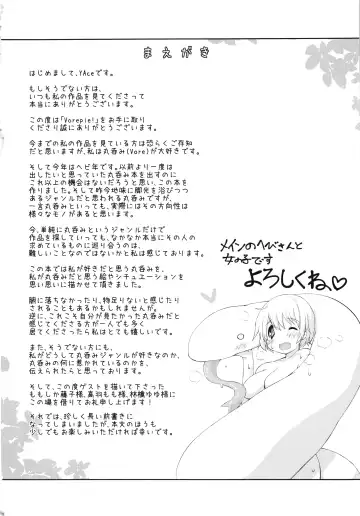 まえがき
はじめまして、YAceです。
もしそうでない方は、
いつも私の作品を見てくださって
本当にありがとうございます。
この度は「Vorepie!」をお手に取り
くださり誠にありがとうございます。
今までの私の作品を見ている方は恐らくご存知
だと思いますが、私は丸呑み(Vore)が大好きです。
そして今年はヘビ年です。以前より一度は
出したいと思っていた丸呑み本を出すのに
これ以上の機会はないだろうと思い、この本を
作りました。そして昨今地味に脚光を浴びつつ
あるジャンルだと思われる丸呑みですが、
一言丸呑みといっても、実際にはその方向性は
様々なモノがあると思います。
今、単純に丸呑みというジャンルだけで
作品を探していっても、なかなか本当にその人の
求めているものに巡り合うのは、
難しいことなのではないかと私は感じております。
この本では私が好きだと思う丸呑みを、
私が丸呑みだと思う絵やシチュエーションを
思い思いに描かせて頂きました。
腑に落ちなかったり、物足りないと感じたり
されることもあるかもしれませんが、
逆に、これこそ自分が見たかった丸呑みだと
感じてくださる方が一人でも多く
居てくださったら私はとても嬉しいです。
また、そうでない方にも、
私がどうして丸呑みジャンルが好きなのか、
丸呑みの何に惹かれているのかを、
伝えられたらと思っております。
そして、この度ゲストを描いて下さった
ももしか藤子様、真羽もも様、林檎ゆゆ様に
この場を借りてお礼申し上げます!
それでは、珍しく長い前書きに
なってしまいましたが、本文のほうも
少しでもお楽しみいただければ幸いです。
メインのヘビさんと
女の子です
よろしくね、♡